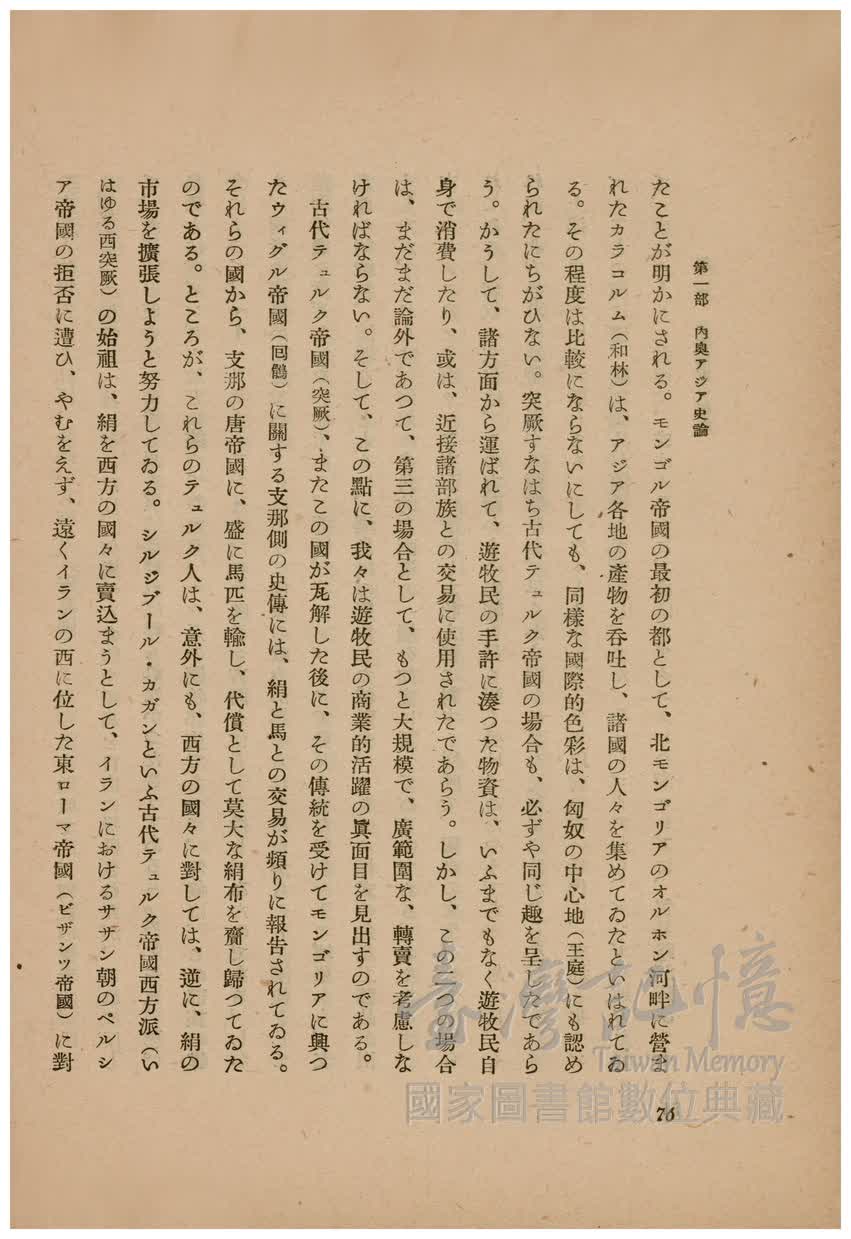 第一部 內奧アジア史論
たことが明かにされる。モンゴル帝國の最初の都として、北モンゴリアのオルホン河畔に營ま
れたカラコルム(和林)は、アジア各地の產物を吞吐し、諸國の人々を集めてゐたといはれてゐ
る。その程度は比較にならないにしても、同樣な國際的色彩は、匈奴の中心地(王庭)にも認め
られたにちがひない。突厥すなはち古代テュルク帝國の場合も、必ずや同じ趣を呈したであら
う。かうして、諸方面から運ばれて、遊牧民の手許に湊つた物資は、いふまでもなく遊牧民自
身で消費したり、或は、近接諸部族との交易に使用されたであらう。しかし、この二つの場合
は、まだまだ論外であつて、第三の場合として、もつと大規模で、廣範圍な、轉賣を考慮しな
ければならない。そして、この點に、我々は遊牧民の商業的活躍の眞面目を見出すのである。
古代テュルク帝國(突厥)、またこの國が瓦解した後に、その傳統を受けてモンゴリアに興つ
たウィグル帝國(囘鶻)に關する支那側の史傳には、絹と馬との交易が頻りに報告されてゐる。
それらの國から、支那の唐帝國に、盛に馬匹を輸し、代償として莫大な絹布を齎し歸つてゐた
のである。ところが、これらのテュルク人は、意外にも、西方の國々に對しては、逆に、絹の
市場を擴張しようと努力してゐる。シルジブール・カガンといふ古代テュルク帝國西方派(い
はゆる西突厥)の始祖は、絹を西方の國々に賣込まうとして、イランにおけるササン朝のペルシ
ア帝國の拒否に遭ひ、やむをえず、遠くイランの西に位した東ローマ帝國(ビザンツ帝國)に對
76
臺灣記憶
Taiwan Memory
國家圖書館數位典藏